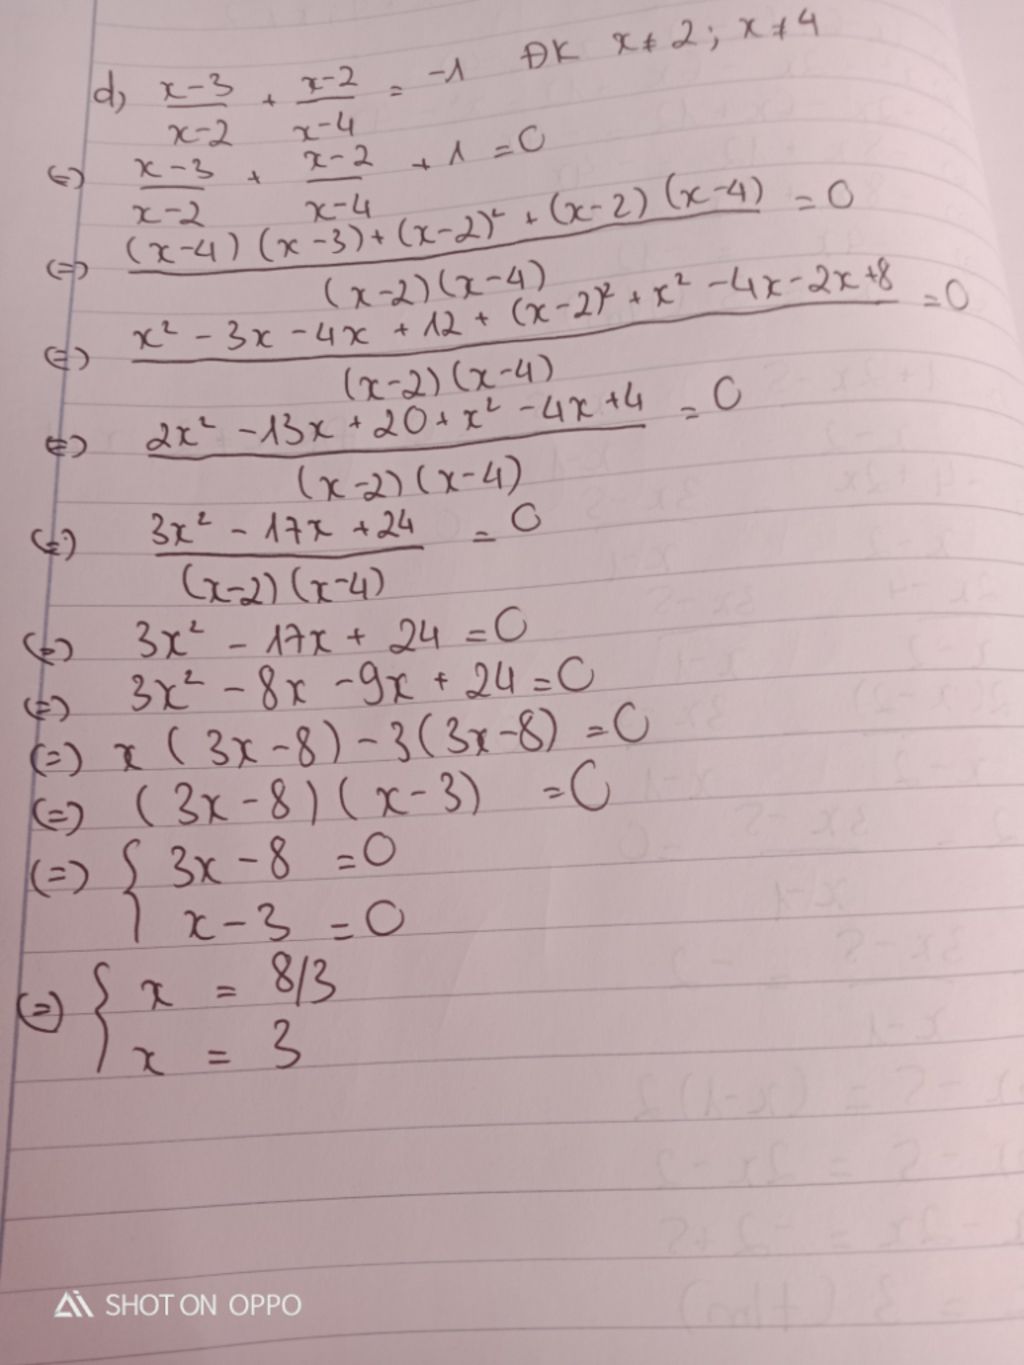 d) (x-3)/(x-2) + (x-2)/(x-4) = -1 ĐK x ≠ 2; x ≠ 4
(=) (x-3)/(x-2) + (x-2)/(x-4) + 1 = 0
(=) ((x-4)(x-3)+(x-2)²+(x-2)(x-4))/((x-2)(x-4)) = 0
(=) (x²-3x-4x+12+(x-2)²+x²-4x-2x+8)/((x-2)(x-4)) = 0
(=) (2x²-13x+20+x²-4x+4)/((x-2)(x-4)) = 0
(=) (3x²-17x+24)/((x-2)(x-4)) = 0
(=) 3x²-17x+24=0
(=) 3x²-8x-9x+24=0
(=) x(3x-8)-3(3x-8)=0
(=) (3x-8)(x-3) =0
(=) { 3x-8 =0
x-3 =0
(=) { x = 8/3
x = 3
SHOT ON OPPO